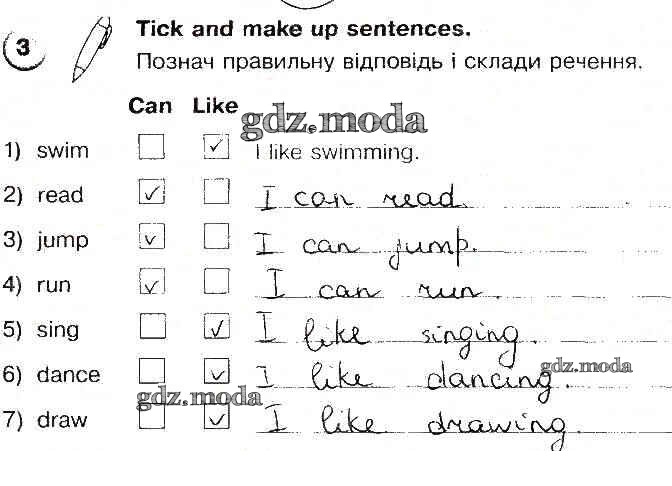 3 Tick and make up sentences.
Познач правильну відповідь і склади речення.
Can Like
gdz.moda
1) swim I like swimming.
2) read I can read.
3) jump I can jump.
4) run I can run.
5) sing I like singing.
6) dance I like dancing.
gdz.moda
gdz.moda
7) draw I like drawing.